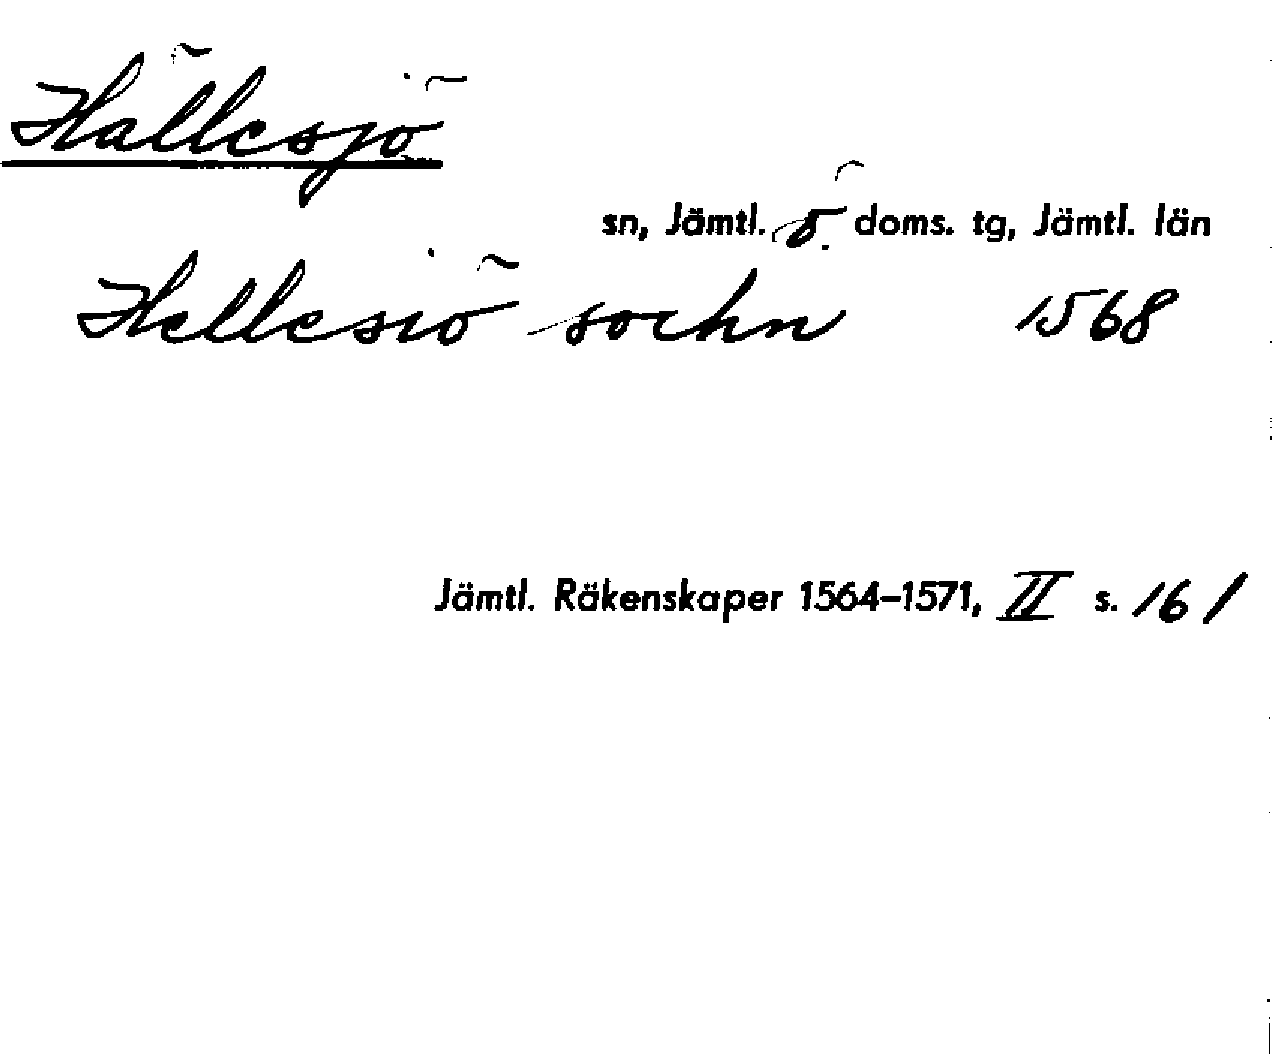 Hällesjö
sn, Jämtl. ö. doms. tg, Jämtl. län
Hellesiö sochn 1568
Jämtl. Räkenskaper 1564-1571, II s. 161